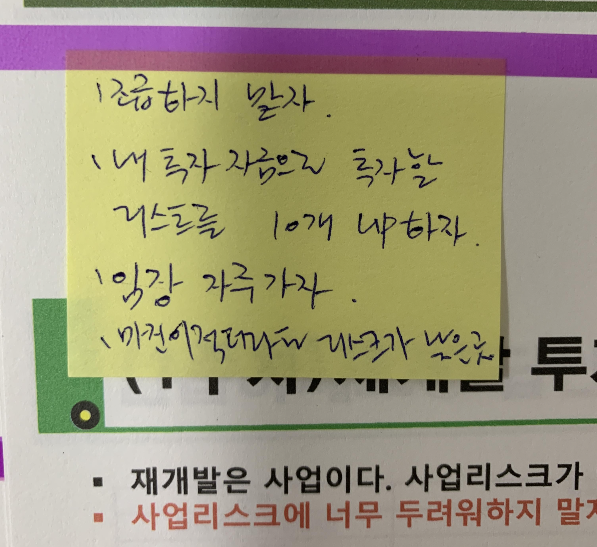 \ 조급하지 말자.
\ 내 투자 자금으로 투자할
리스트를 10개 UP하자.
\ 임장 자주 가자.
\ 마진이 적더라도 리스크가 낮은곳.
투자
▪ 재개발은 사업이다. 사업리스크가
▪ 사업리스크에 너무 두려워하지 말자